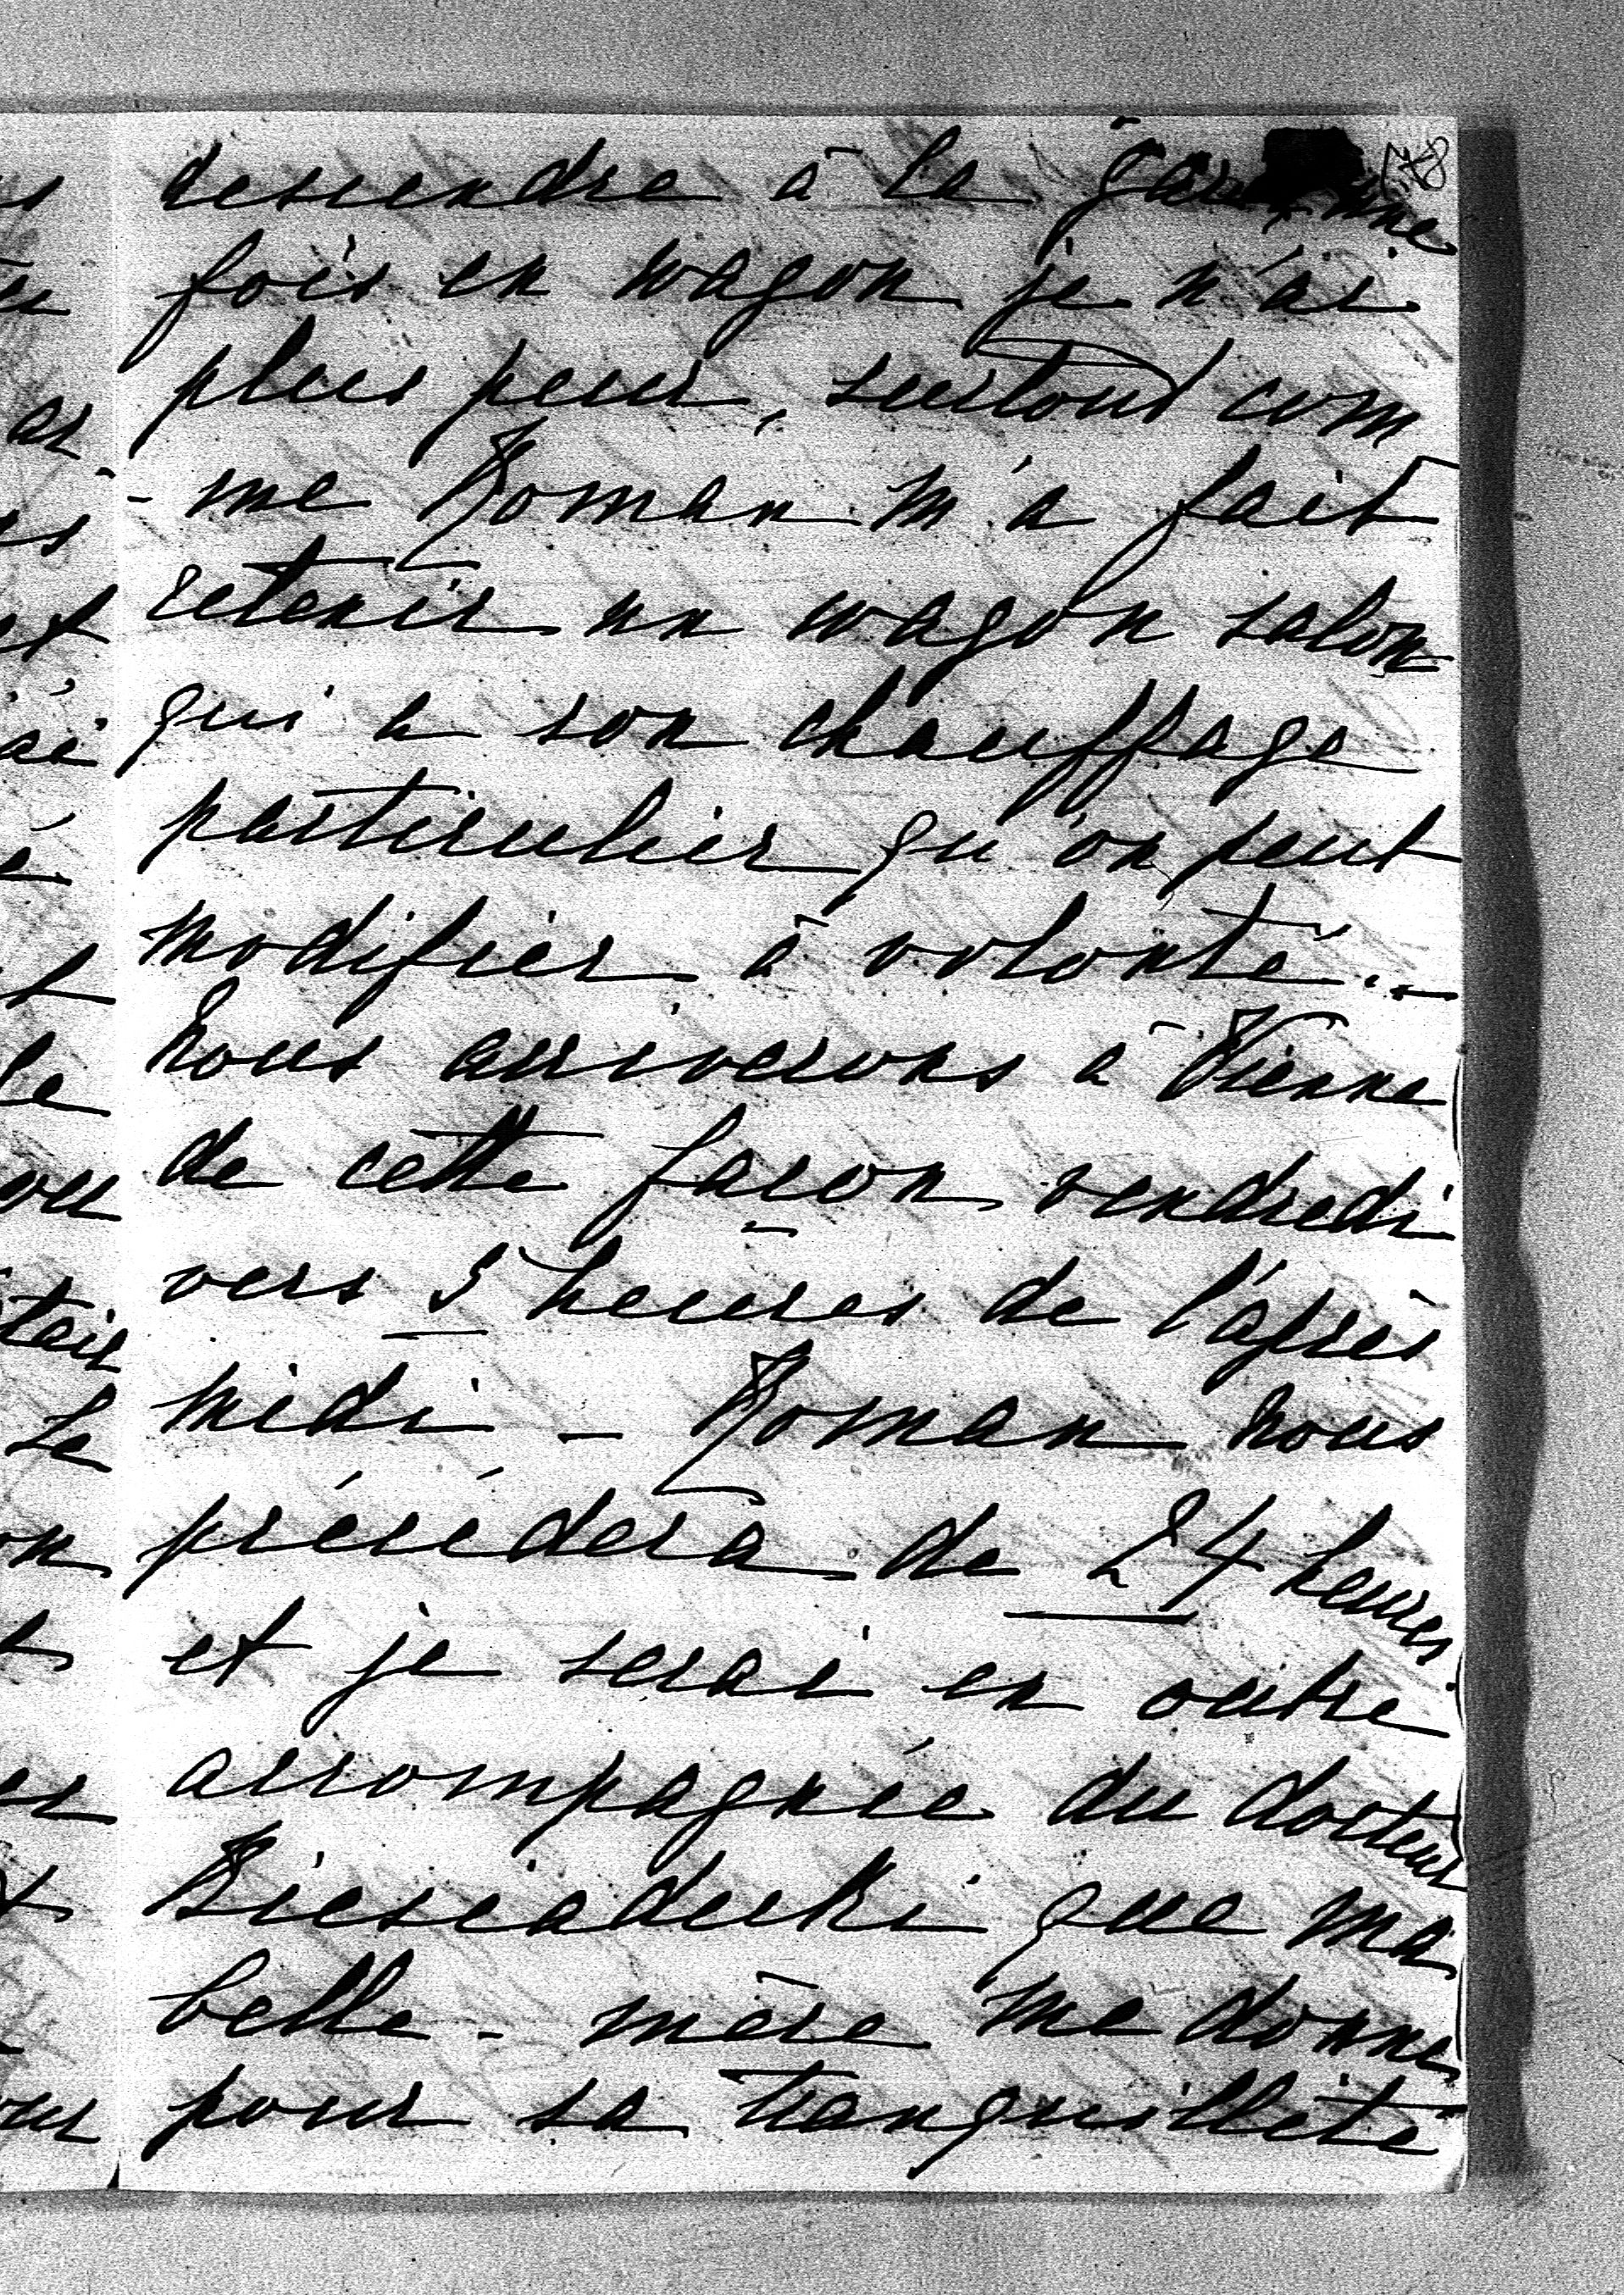 descendre à la gare une
fois en wagon je n'ai
plus peur, surtout com
- me Roman m'a fait
retenir un wagon salon
qui a son chauffage
particulier qu'on peut
modifier à volonté. -
Nous arriverons à Vienne
de cette façon vendredi
vers 3 heures de l'après
midi - Roman nous
précédera de 24 heures
et je serai en outre
accompagnée du docteur
Biesiadecki que ma
belle-mère me donne
pour sa tranquillité